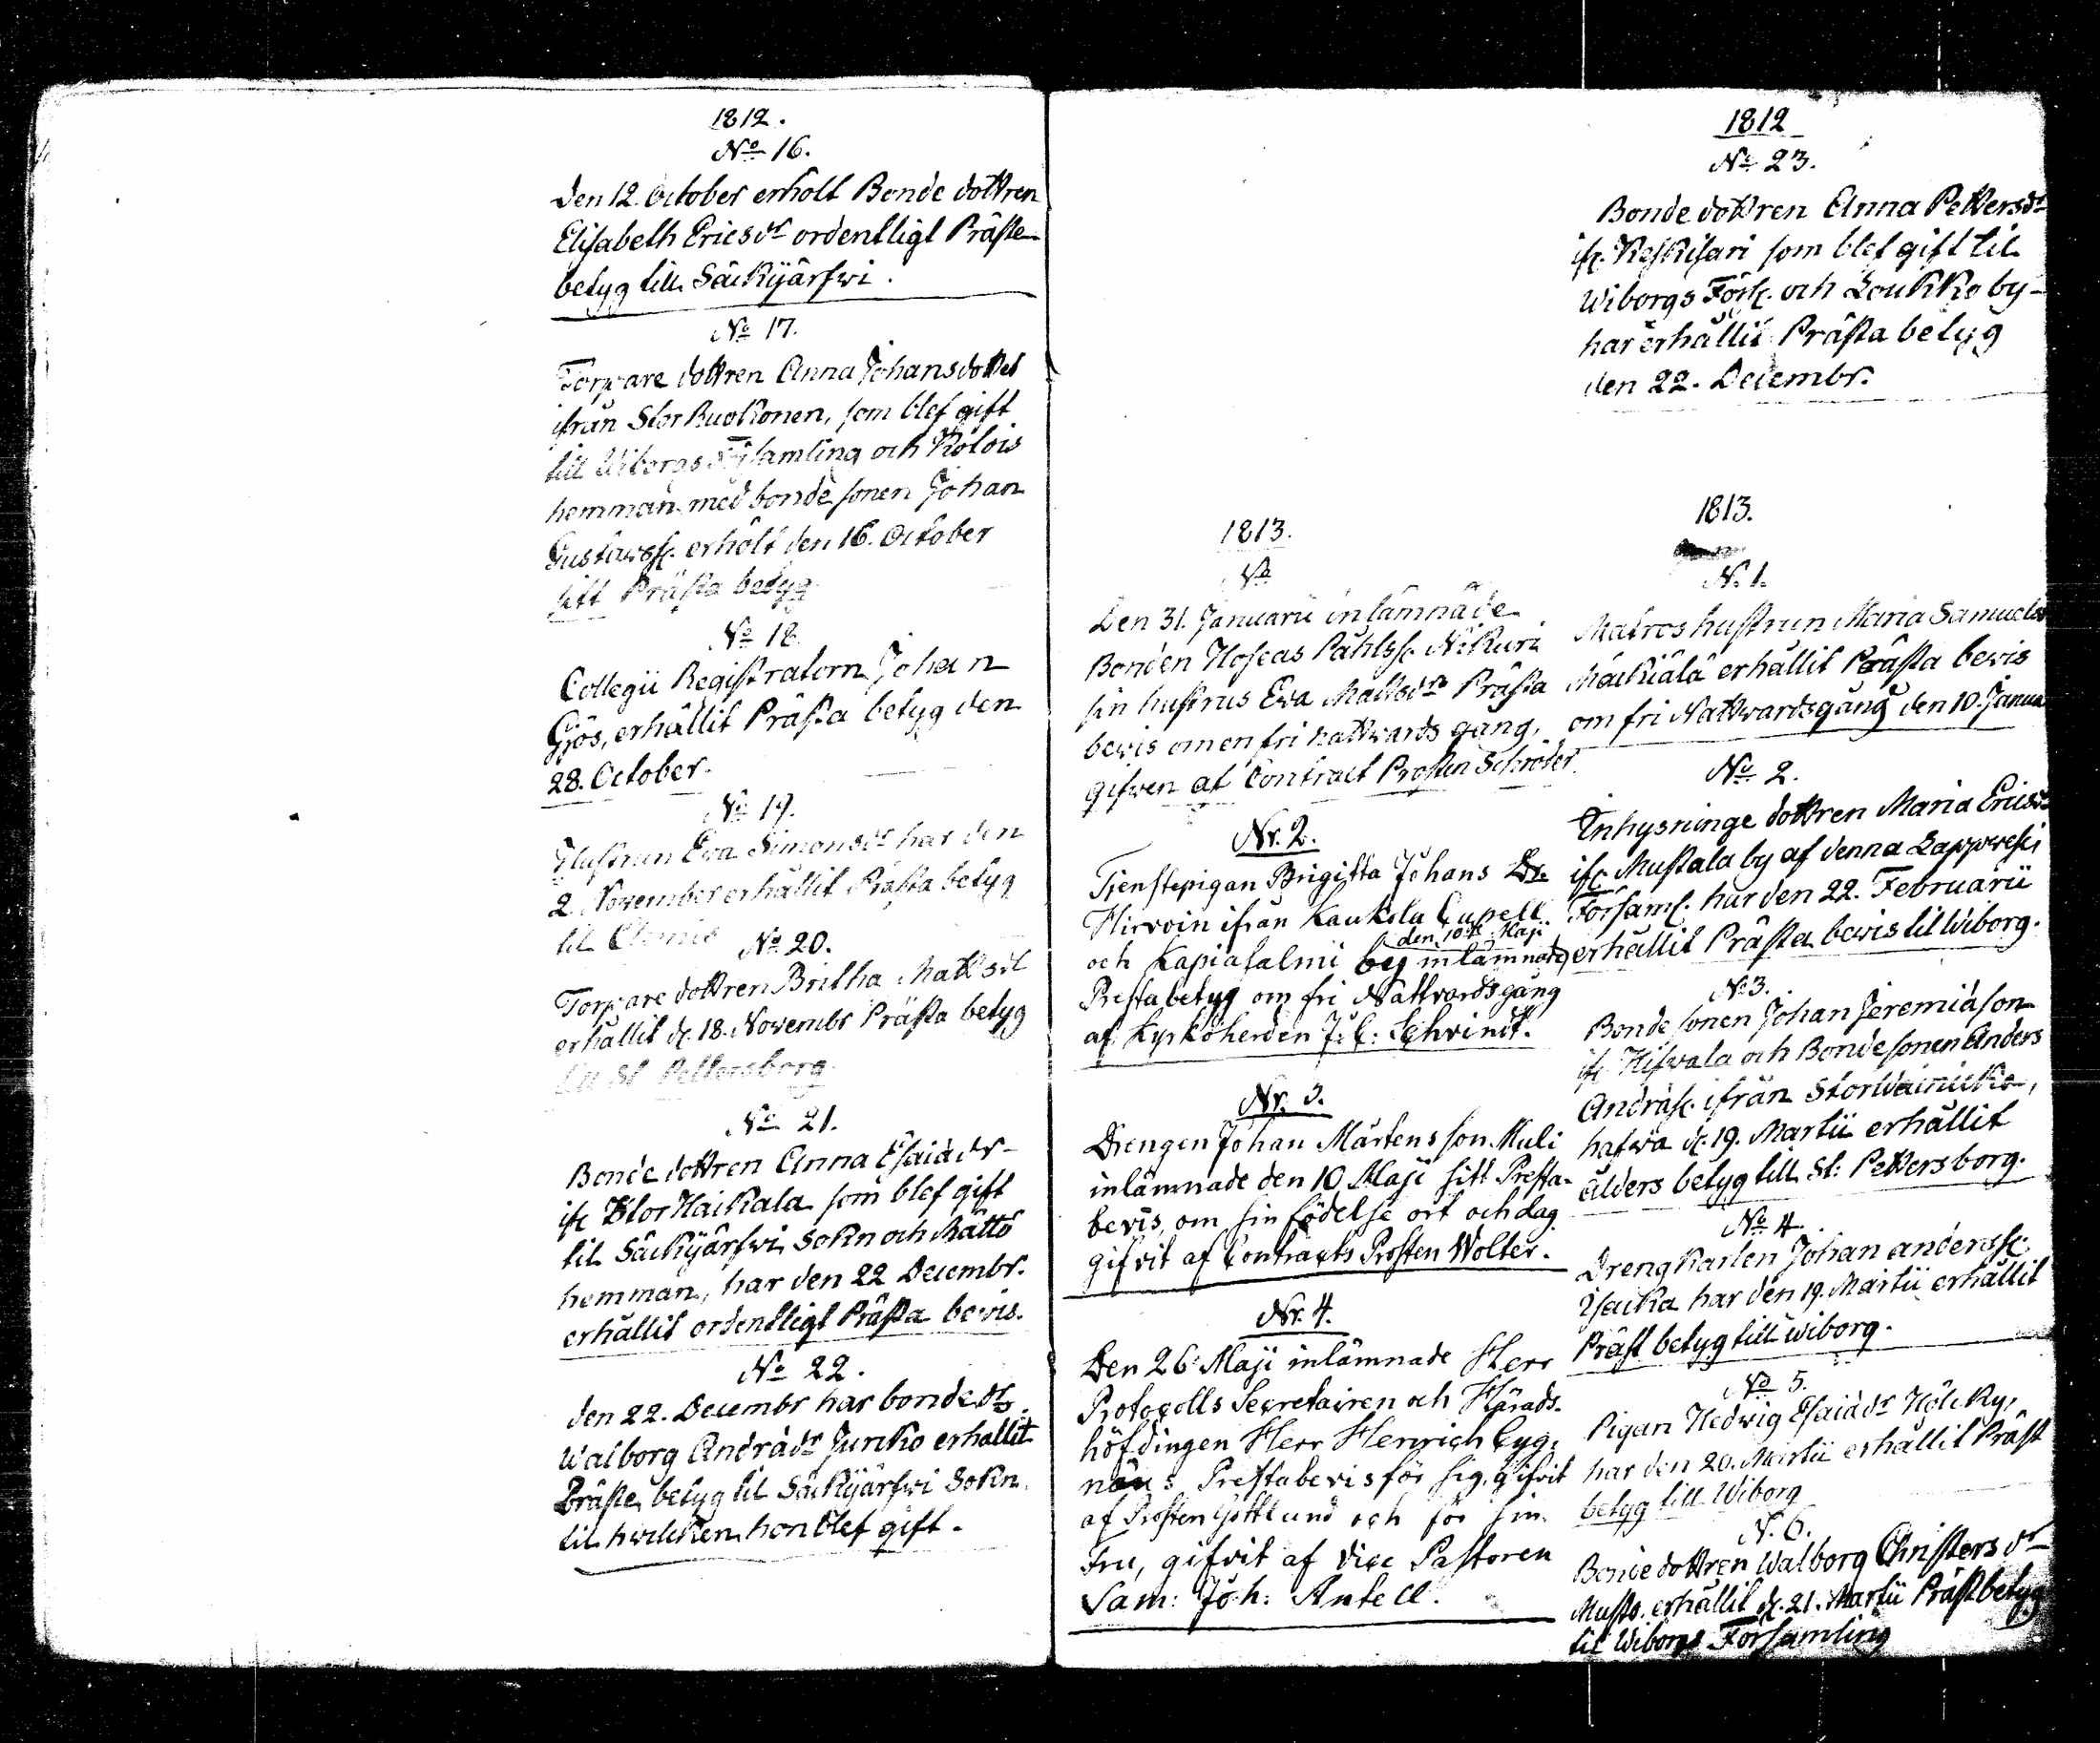 1812.
No 16.
Den 12. October erholt Bonde dottren
Elisabeth Ericsdr ordentligt Präste
betyg till Säckijärfwi.
No 17.
Torpare dottren Anna Johansdotter
ifrån Stor Kuokonen, som blef gift
till Wiborgs Församling och Kolois
hemman med bonde sonen Johan
Gustavss. erhölt den 16. October
sitt Prästa betyg
No 18
Collegii Registratorn Johan
Gjös, erhållit Prästa betyg den
28. October.
No 19.
Hustrun Eva Simonsdr har den
2. November erhållit Prästa betyg
til
No 20.
Torpare dottren Britha Mattsdr
erhållit d. 18. Novembr Prästa betyg
till St Pettersborg
No 21.
Bonde dottren Anna Esaiädr
ifr Stor Haikala som blef gift
til Säckijärfwi Sokn och Mättö
hemman, har den 22 Decembr.
erhållit ordentligt Prästa bewis.
No 22.
den 22. Decembr har bonde dr
Walborg Andrädr Junko erhållit
Präste betyg til Säckijärfwi Sokn
til hwilcken hon blef gift.
1813.
No
Den 31. Januarii inlämnade
Bonden Hoseas Påhlss. Nikuri
sin hustrus Eva Mattsdrs Prästa
bewis om en fri nattwards gang,
gifwen af Contract Prosten Schröder.
Nr. 2.
Tjenstepigan Brigitta Johans Dr.
Hirvoin ifrån Kaukola Capell
den 10de Maji
och Kapiasalmi by inlämnade
Prestabetyg om fri Nattvardsgång
af Kyrkoherden J: C: Schvindt.
Nr. 3.
Drengen Johan Mårtensson Muli
inlämnade den 10 Maji sitt Presta-
bevis, om sin födelse ort och dag
gifvit af Contracts Prosten Wolter.
Nr. 4.
Den 26 Maji inlämnade Herr
Protocolls Secretairen och Härads-
höfdingen Herr Henrich Cyg-
næus Prestabevis för sig, gifvit
af Prosten Gottlund och för sin
Fru, gifvit af Vice Pastoren
Sam: Joh: Antell.
1812
No 23.
Bonde dottren Anna Pettersdr
ifr. Keskisari som blef gift til
Wiborgs Förs. och Loukko by
har erhållit Prästa betyg
den 22. Decembr.
1813.
N. 1.
Matros hustrun Maria Samuelsdr
Mäckiälä erhållit Prästa bewis
om fri Nattwardsgång den 10. Janua
No 2.
Inhysninge dottren Maria Ericsdr
ifr Mustala by af denna Lappwesi
Församl. har den 22. Februarii
erhållit Prästa bewis til Wiborg.
No 3.
Bonde sonen Johan Jeremiäson
ifr Hifwala och Bonde sonen Anders
Andräss. ifrån Stor
hafwa d. 19. Martii erhållit
ålders betyg till St: Pettersborg.
No 4
Dreng Karlen Johan anderss.
Isacka har den 19. Martii erhållit
Präst betyg till Wiborg.
No 5.
Pigan Hedwig Esaiädr Hölcky,
har den 20. Martii erhållit Präst
betyg till Wiborg
N. 6.
Bonde dottren Walborg Christersdr
Musto. erhållit d. 21. Martii Präst betyg
til Wiborgs Församling